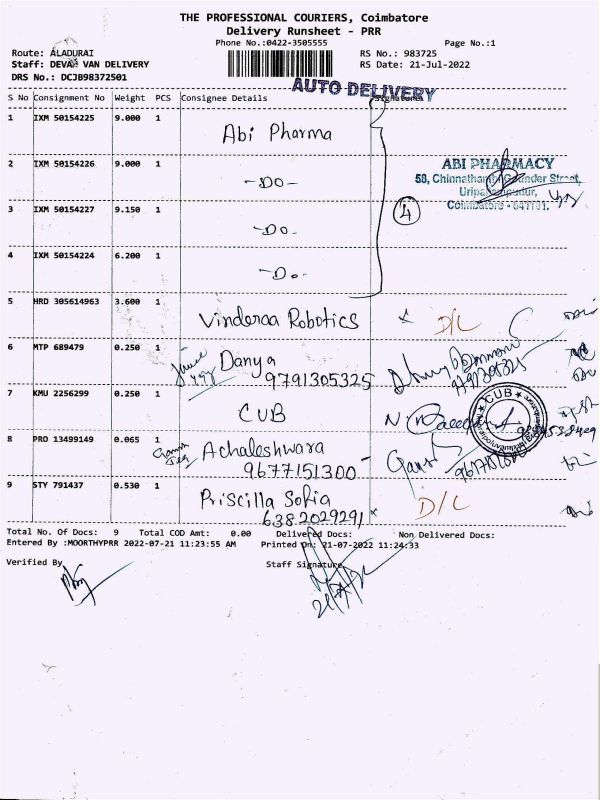 THE PROFESSIONAL COURIERS, Coimbatore
Delivery Runsheet - PRR
Phone No.:0422-3505555 Page No.:1
Route: ALADURAI RS No.: 983725
Staff: DEVA VAN DELIVERY RS Date: 21-Jul-2022
DRS No.: DCJB98372501
AUTO DELIVERY
S No Consignment No Weight PCS Consignee Details Signatures
1 IXM 50154225 9.000 1 Abi Pharma
2 IXM 50154226 9.000 1 -Do-
ABI PHARMACY
58, Chinnathambi Gounder Street,
Coimbatore - 641101.
3 IXM 50154227 9.150 1 -Do-
4
4 IXM 50154224 6.200 1 -Do-
5 HRD 305614963 3.600 1 Vinderaa Robotics D/L
6 MTP 689479 0.250 1 Danya
9791305325
9791305325
7 KMU 2256299 0.250 1 CUB
CUB
8 PRO 13499149 0.065 1 Achaleshwara
9677151300
9 STY 791437 0.530 1 Priscilla Sofia D/L
6382029291
Total No. Of Docs: 9 Total COD Amt: 0.00 Delivered Docs: Non Delivered Docs:
Entered By :MOORTHYPRR 2022-07-21 11:23:55 AM Printed On: 21-07-2022 11:24:33
Verified By Staff Signature